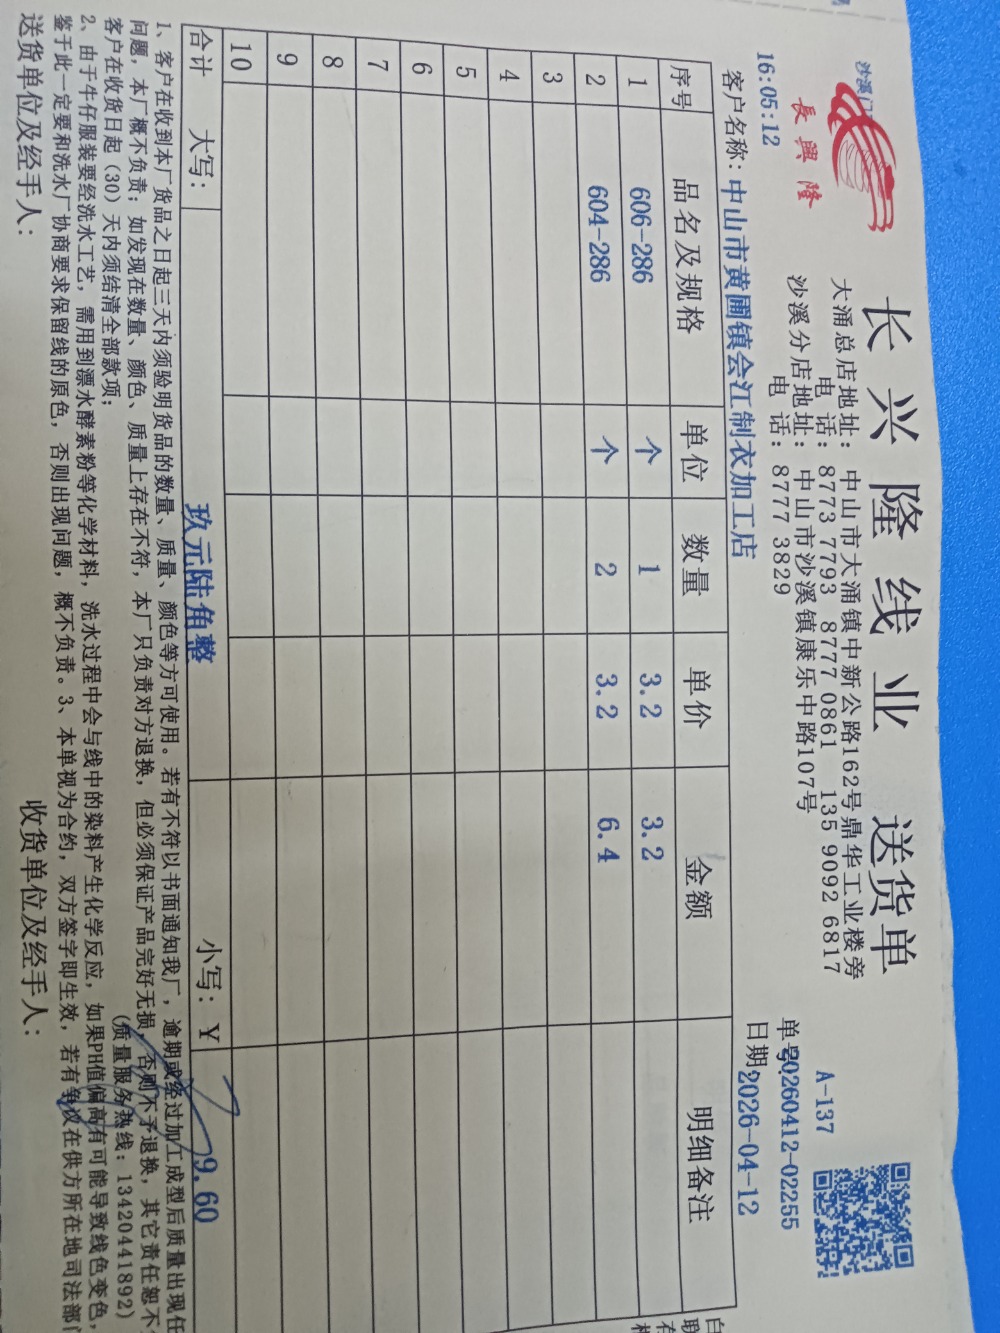 沙溪门
長興隆
长兴隆线业 送货单
大涌总店地址: 中山市大涌镇中新公路162号鼎华工业楼旁
电 话: 8773 7793 8777 0861 135 9092 6817
沙溪分店地址: 中山市沙溪镇康乐中路107号
电 话: 8777 3829
A-137
16:05:12
单号:20260412-02255
客户名称: 中山市黄圃镇会江制衣加工店
日期:2026-04-12
序号 品名及规格 单位 数量 单价 金额 明细备注
1 606-286 个 1 3.2 3.2
2 604-286 个 2 3.2 6.4
3
4
5
6
7
8
9
10
合计 大写: 玖元陆角整 小写: ¥ 9.60
1、客户在收到本厂货品之日起三天内须验明货品的数量、质量、颜色等方可使用。若有不符以书面通知我厂，逾期或经过加工成型后质量出现任
问题，本厂概不负责；如发现在数量、颜色、质量上存在不符，本厂只负责对方退换，但必须保证产品完好无损，否则不予退换，其它责任恕不
客户在收货日起（30）天内须结清全部款项；
(质量服务热线: 13420441892)
2、由于牛仔服装要经洗水工艺，需用到漂水酵素粉等化学材料，洗水过程中会与线中的染料产生化学反应，如果PH值偏高有可能导致线色变色，
鉴于此一定要和洗水厂协商要求保留线的原色，否则出现问题，概不负责。3、本单视为合约，双方签字即生效，若有争议在供方所在地司法部门
送货单位及经手人:
收货单位及经手人: